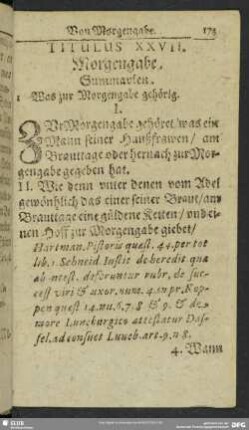 Von Morgengabe. 175
TITULUS XXVII.
Morgengabe.
Summarien.
1 Was zur Morgengabe gehörig.
I.
ZUr Morgengabe gehöret / was ein
Mann seiner Haußfrawen / am
Brauttage oder hernach zur Mor-
gengabe gegeben hat.
II. Wie denn unter denen vom Adel
gewöhnlich das einer seiner Braut / am
Brauttage eine güldene Ketten / und ei-
nen Hoff zur Morgengabe giebet /
Hartman. Pistoris quest. 44. per tot
lib. 1. Schneid. Instit de heredit qua
ab intest. deferuntur rubr. de suc-
cess viri & uxor. num. 4. in pr. Kop-
pen quest 14. nu. 6. 7. 8 & 9. & de
more Luneburgico attestatur Das-
sel. ad consuet Luneb. art. 9. n 8.
4. Wann